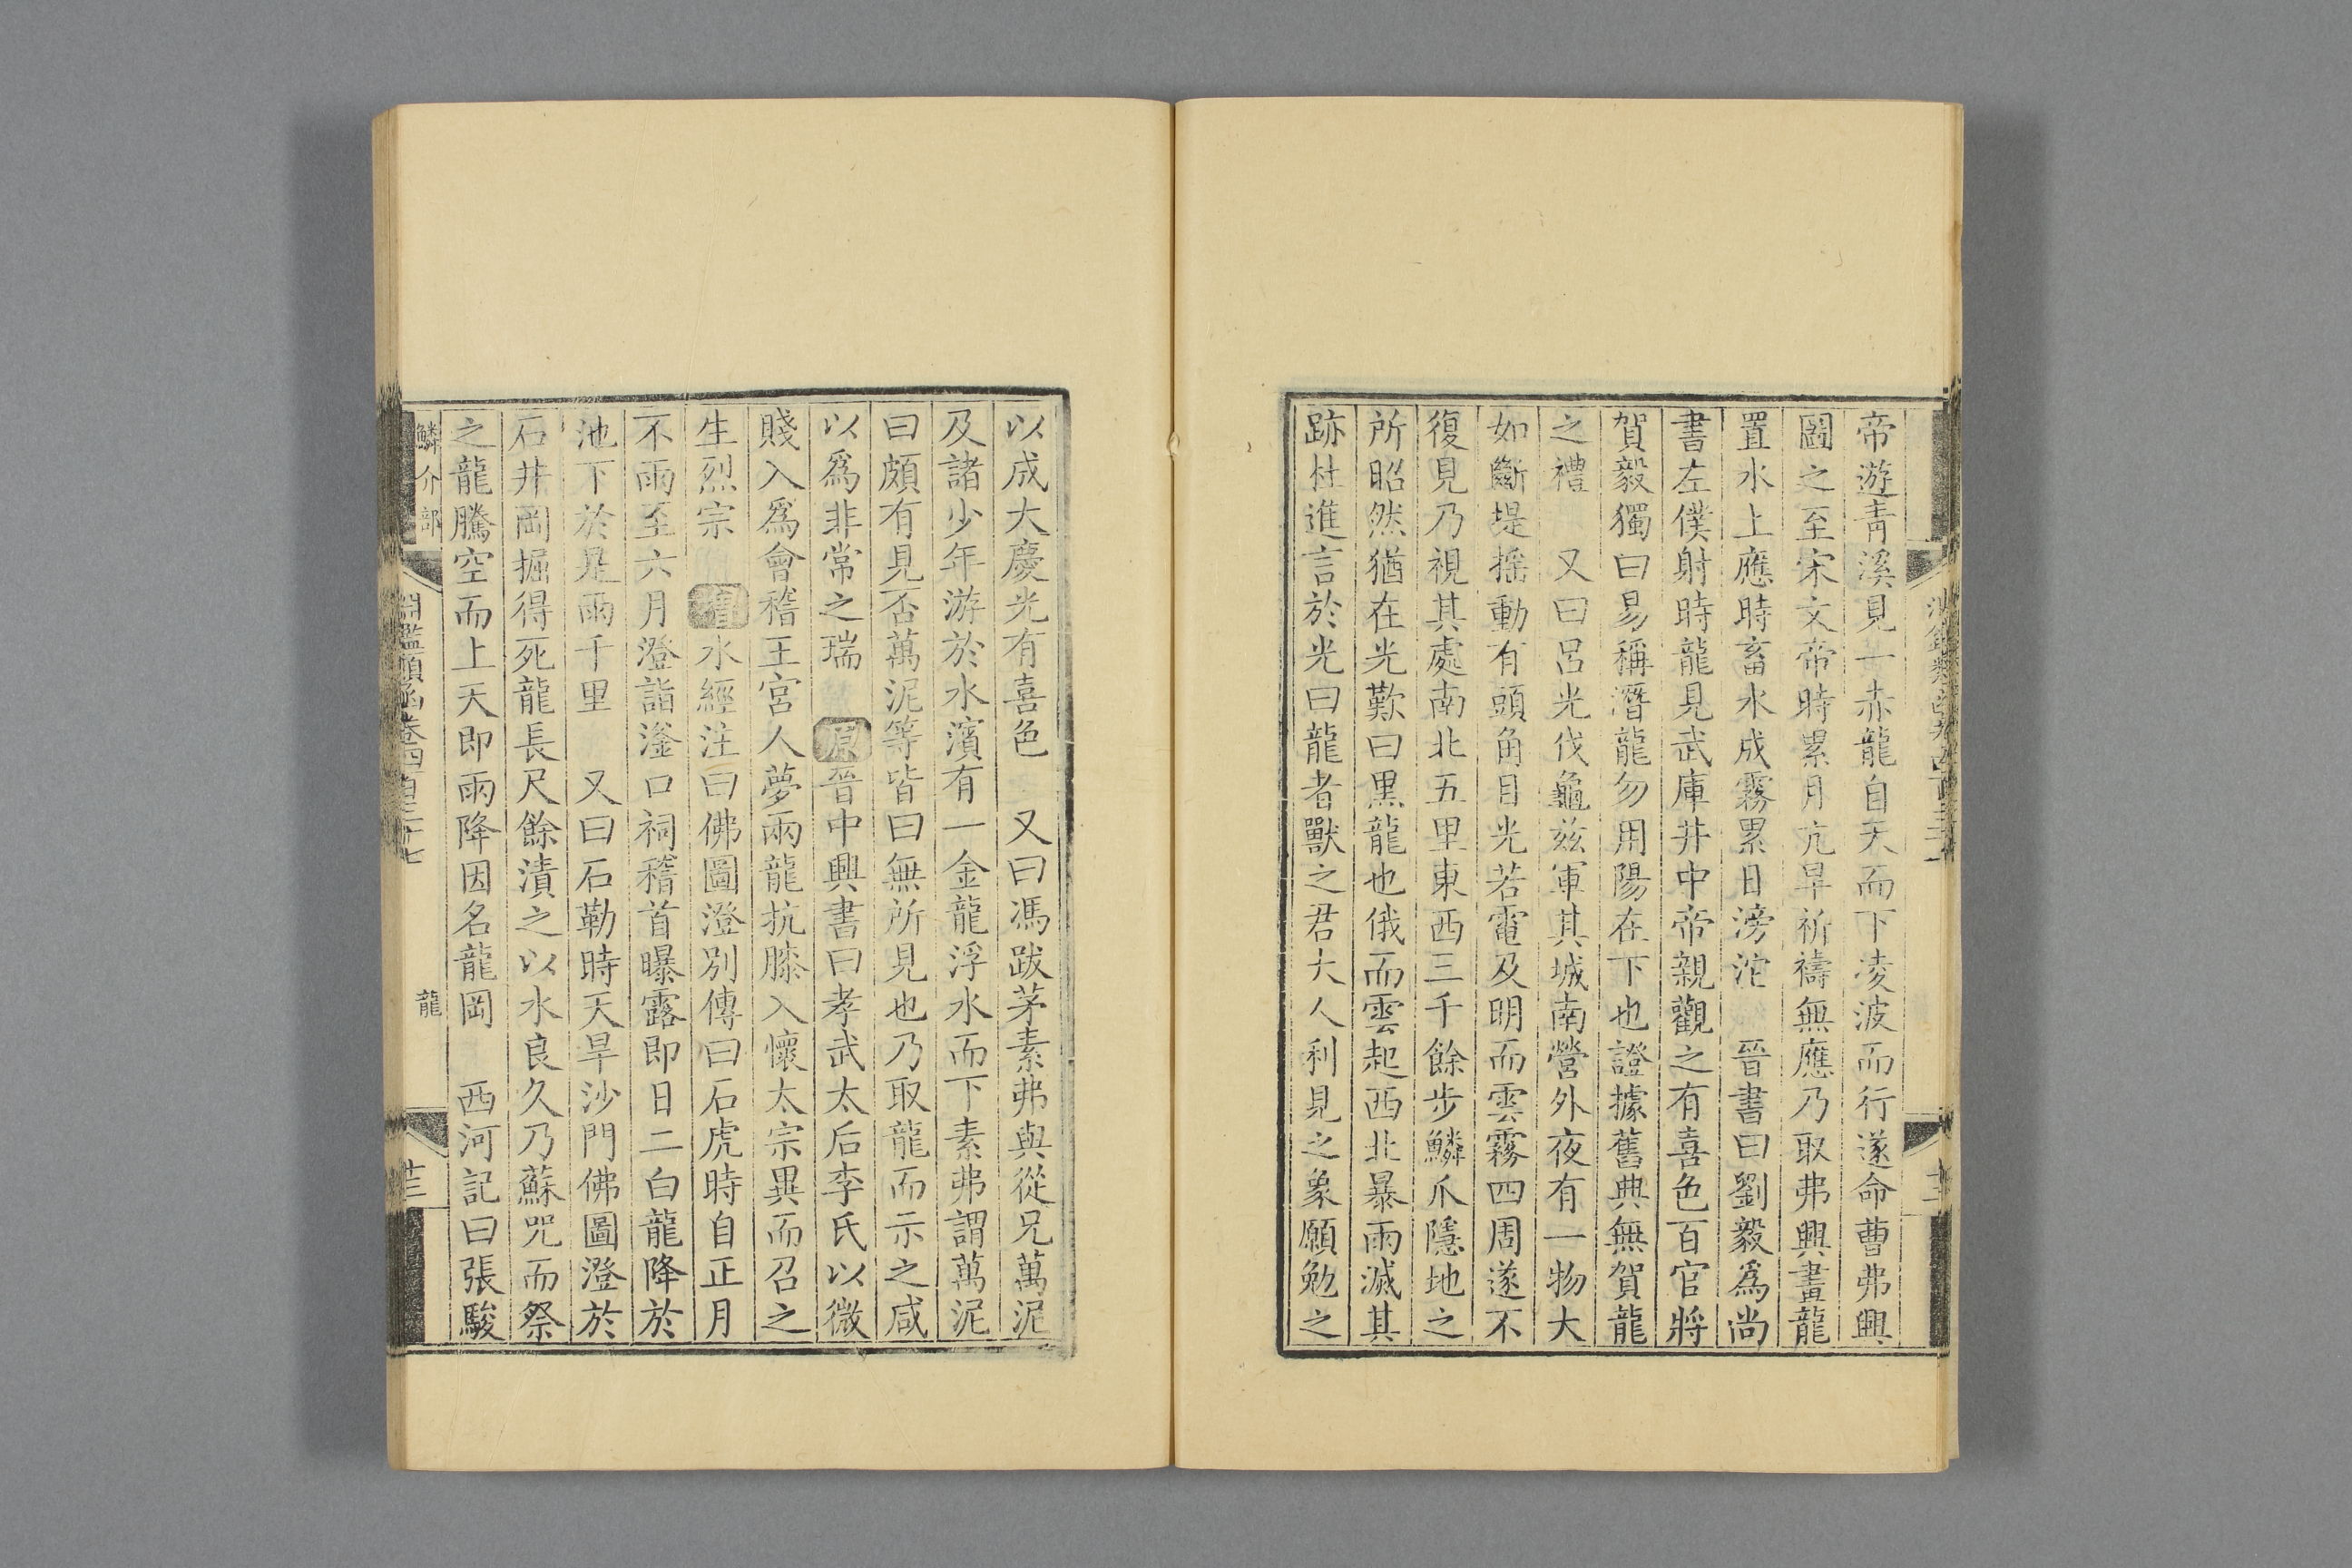 帝遊青溪見一赤龍自天而下凌波而行遂命曹弗興
圖之至宋文帝時累月亢旱祈禱無應乃取弗興畫龍
置水上應時畜水成霧累日滂沱 晉書曰劉毅爲尚
書左僕射時龍見武庫井中帝親觀之有喜色百官將
賀毅獨曰易稱潛龍勿用陽在下也證據舊典無賀龍
之禮 又曰呂光伐龜玆軍其城南營外夜有一物大
如斷堤揺動有頭角目光若電及明而雲霧四周遂不
復見乃視其處南北五里東西三千餘步鱗爪隱地之
所昭然猶在光歎曰黑龍也俄而雲起西北暴雨滅其
跡杜進言於光曰龍者獸之君大人利見之象願勉之
以成大慶光有喜色 又曰馮跋茅素弗與從兄萬泥
及諸少年游於水濱有一金龍浮水而下素弗謂萬泥
曰頗有見否萬泥等皆曰無所見也乃取龍而示之咸
以爲非常之瑞 原晉中興書曰孝武太后李氏以微
賤入爲會稽王宮人夢兩龍抗膝入懷太宗異而召之
生烈宗 增水經注曰佛圖澄別傳曰石虎時自正月
不雨至六月澄詣滏口祠稽首曝露即日二白龍降於
池下於是雨千里 又曰石勒時天旱沙門佛圖澄於
石井岡掘得死龍長尺餘漬之以水良久乃蘇咒而祭
之龍騰空而上天即雨降因名龍岡 西河記曰張駿
鱗介部 淵鑑類函卷四百三十七 龍